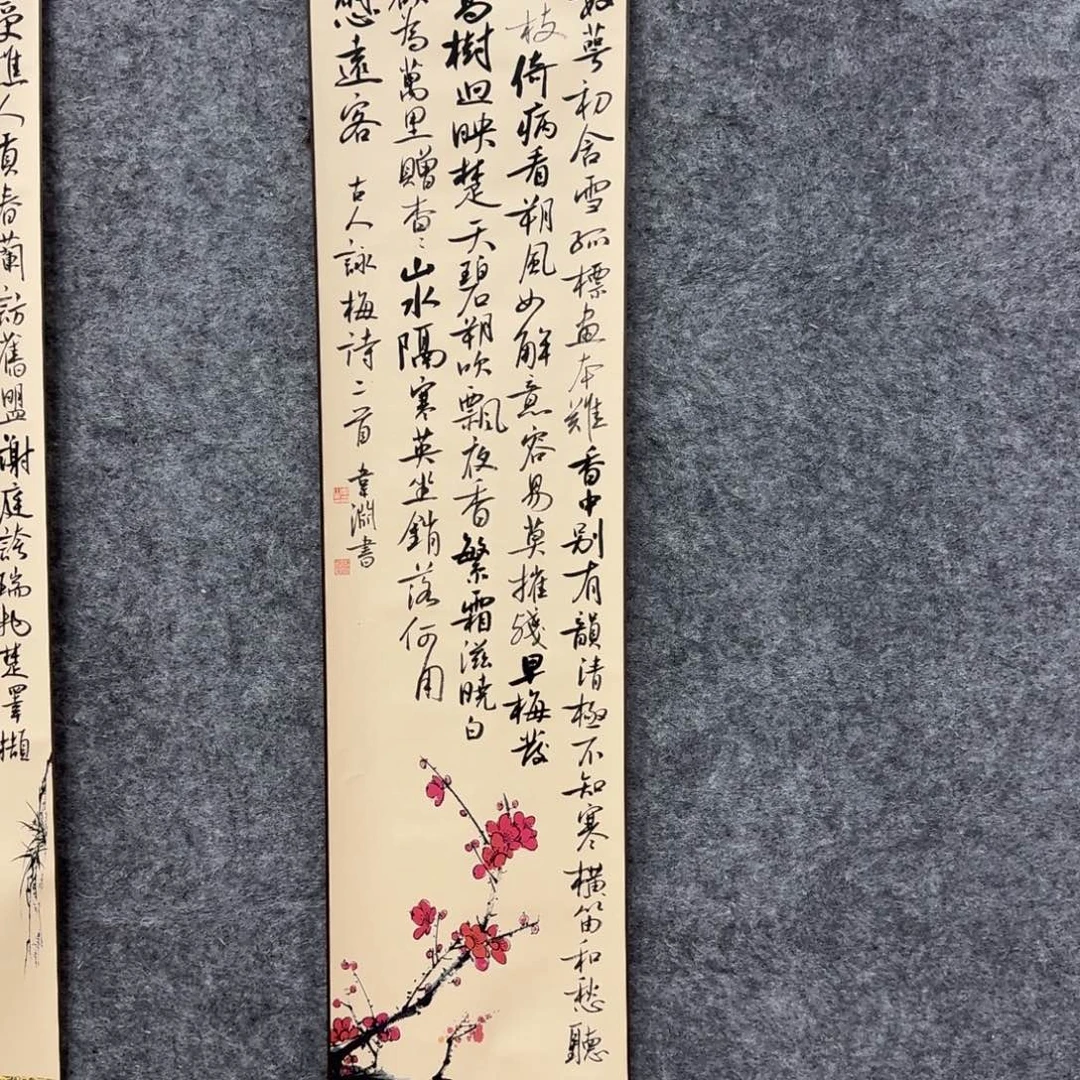 數萼初含雪孤標畫本難香中別有韻清極不知寒橫笛和愁聽
枝倚病看朔風如解意容易莫摧殘早梅發
高樹迥映楚天碧朔吹飄夜香繁霜滋曉白
欲為萬里贈杳〻山水隔寒英坐銷落何用
慰遠客 古人詠梅詩二首 韋淵書
樵人貢春蘭訪舊盟謝庭誇瑞兆楚澤擷